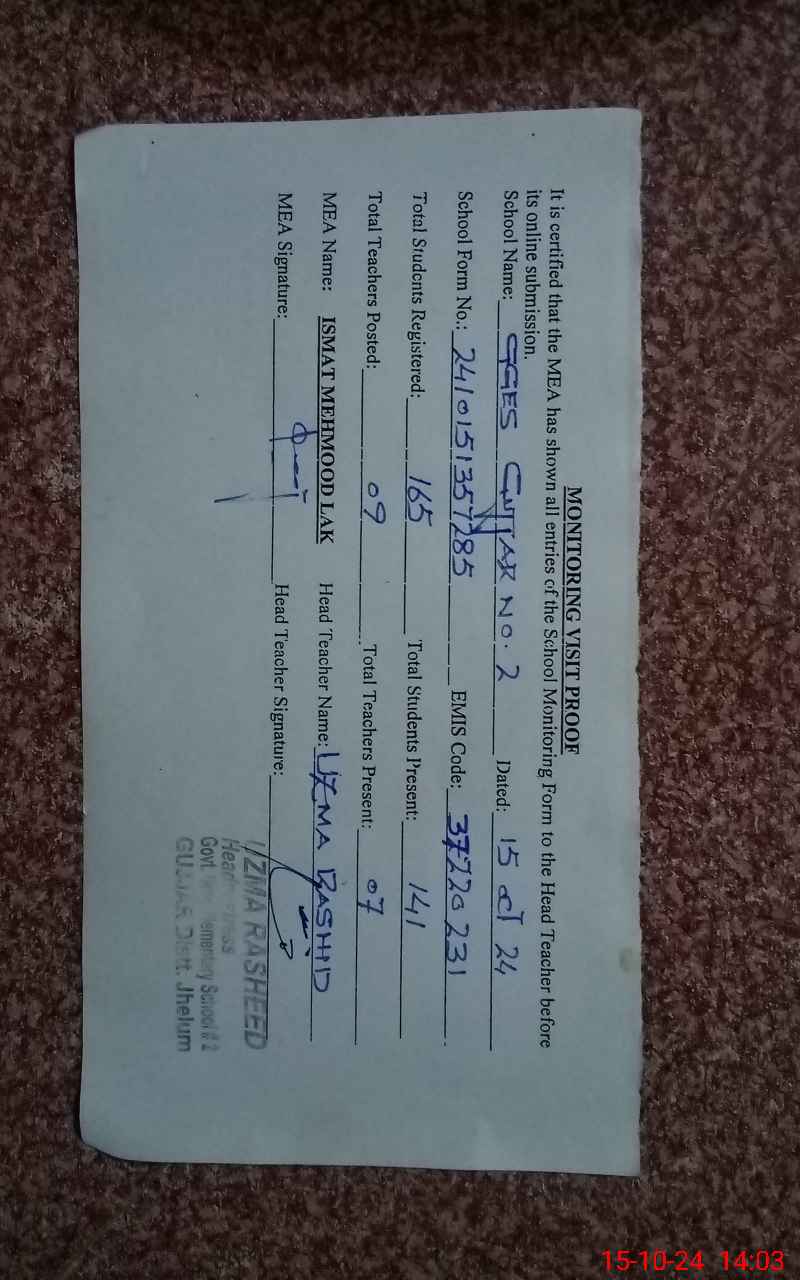 MONITORING VISIT PROOF
It is certified that the MEA has shown all entries of the School Monitoring Form to the Head Teacher before
its online submission.
School Name: GGES GUJJAR NO. 2 Dated: 15 oct 24
School Form No.: 2410151357285 EMIS Code: 37220231
Total Students Registered: 165 Total Students Present: 141
Total Teachers Posted: 09 Total Teachers Present: 07
MEA Name: ISMAT MEHMOOD LAK Head Teacher Name: UZMA RASHID
MEA Signature: Head Teacher Signature:
UZMA RASHEED
Govt. Elementary School # 2
GUJJAR Distt. Jhelum
15-10-24 14:03